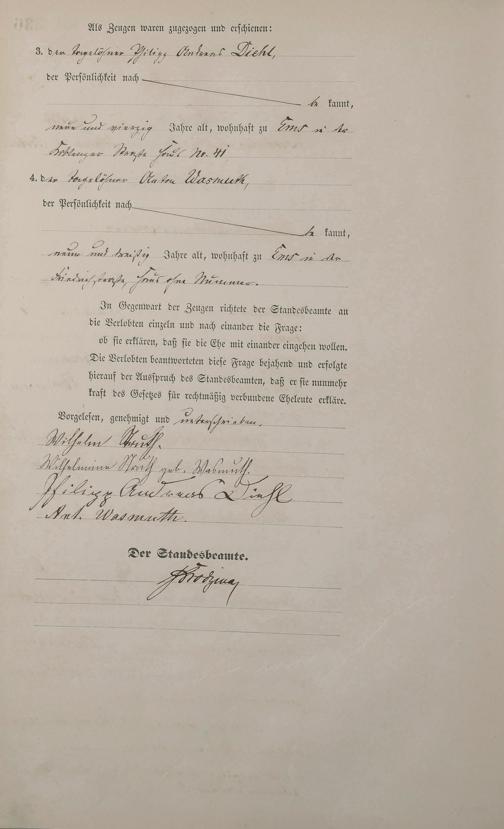 Als Zeugen waren zugezogen und erschienen:
3. der Tagelöhner Philipp Andreas Diehl,
der Persönlichkeit nach
be kannt,
neun und vierzig Jahre alt, wohnhaft zu Ems in der
Koblenzer Straße Haus No. 41
4. der Tagelöhner Anton Wasmuth,
der Persönlichkeit nach
be kannt,
neun und dreißig Jahre alt, wohnhaft zu Ems in der
Friedrichstraße, Haus ohne Nummer.
In Gegenwart der Zeugen richtete der Standesbeamte an
die Verlobten einzeln und nach einander die Frage:
ob sie erklären, daß sie die Ehe mit einander eingehen wollen.
Die Verlobten beantworteten diese Frage bejahend und erfolgte
hierauf der Ausspruch des Standesbeamten, daß er sie nunmehr
kraft des Gesetzes für rechtmäßig verbundene Eheleute erkläre.
Vorgelesen, genehmigt und unterschrieben.
Wilhelm
Wilhelmine geb. Wasmuth.
Philipp Andreas Diehl
Ant. Wasmuth.
Der Standesbeamte.